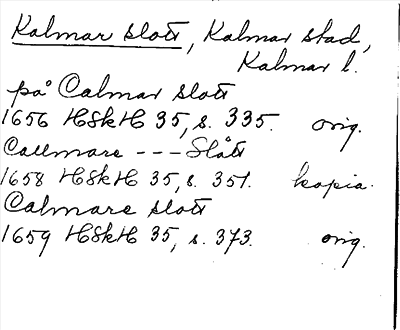 Kalmar slott, Kalmar stad,
Kalmar l.
på Calmar slott
1656 HSkH 35, s. 335. orig.
Callmare --- Slått
1658 HSkH 35, s. 351. kopia.
Calmare slott
1659 HSkH 35, s. 373. orig.